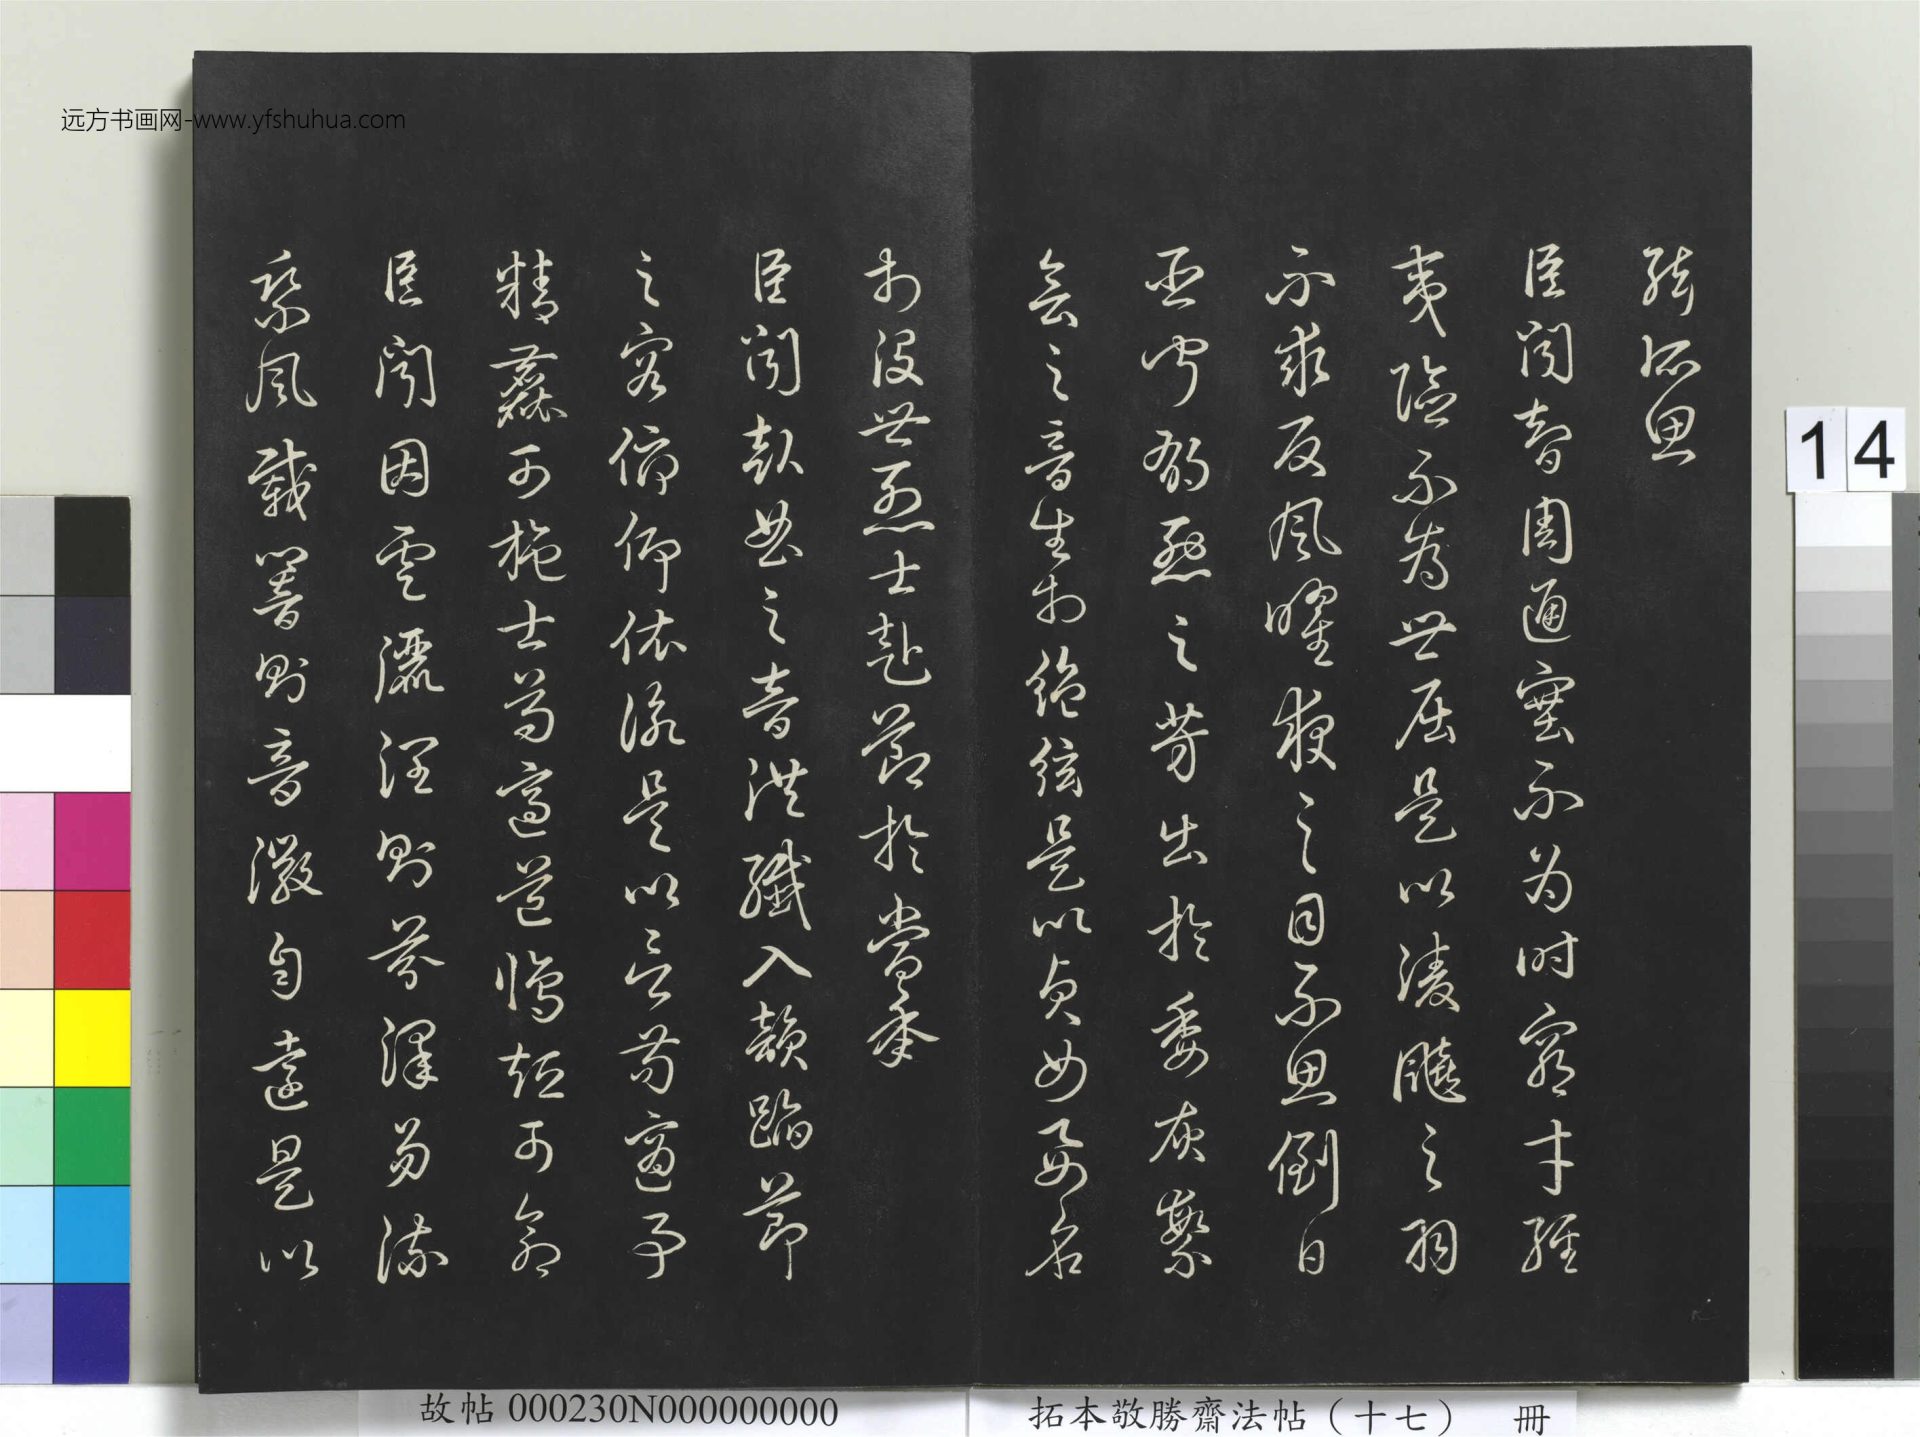 远方书画网-www.yfshuhua.com
絃所思
臣聞智周通塞不為時窮才經
夷險不為世屈是以淩飇之羽
不求反風曜夜之目不思倒日
臣聞郁烈之芳出於委灰繁
會之音生於絕絃是以貞女要名
於沒世烈士赴節於當年
臣聞赴曲之音洪纖入韻蹈節
之容俯仰依詠是以言苟適事
精麤可施士苟適道脩短可命
臣聞因雲灑潤則芬澤易流
乘風載響則音徽自遠是以
14
故帖 000230N000000000
拓本敬勝齋法帖（十七） 冊